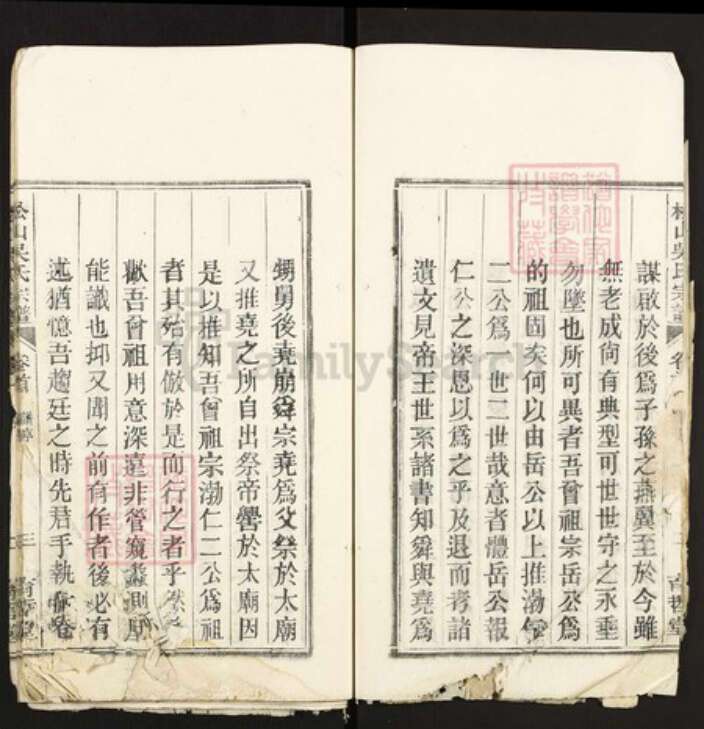 謀啟於後爲子孫之燕翼至於今雖
無老成尙有典型可世世守之永垂
勿墜也所可異者吾曾祖宗岳公爲
的祖固矣何以由岳公以上推渤仁
二公爲一世二世哉意者體岳公報
仁公之深恩以爲之乎及退而考諸
遺文見帝王世系諸書知舜與堯爲
甥舅後堯崩舜宗堯爲父祭於太廟
又推堯之所自出祭帝嚳於太廟因
是以推知吾曾祖宗渤仁二公爲祖
者其殆有倣於是而行之者乎然
歟吾曾祖用意深遠非管窺蠡測所
能識也抑又聞之前有作者後必有
述猶憶吾趨廷之時先君手執 卷
松山吳氏宗譜
卷首
三
育哲堂
FamilySearch